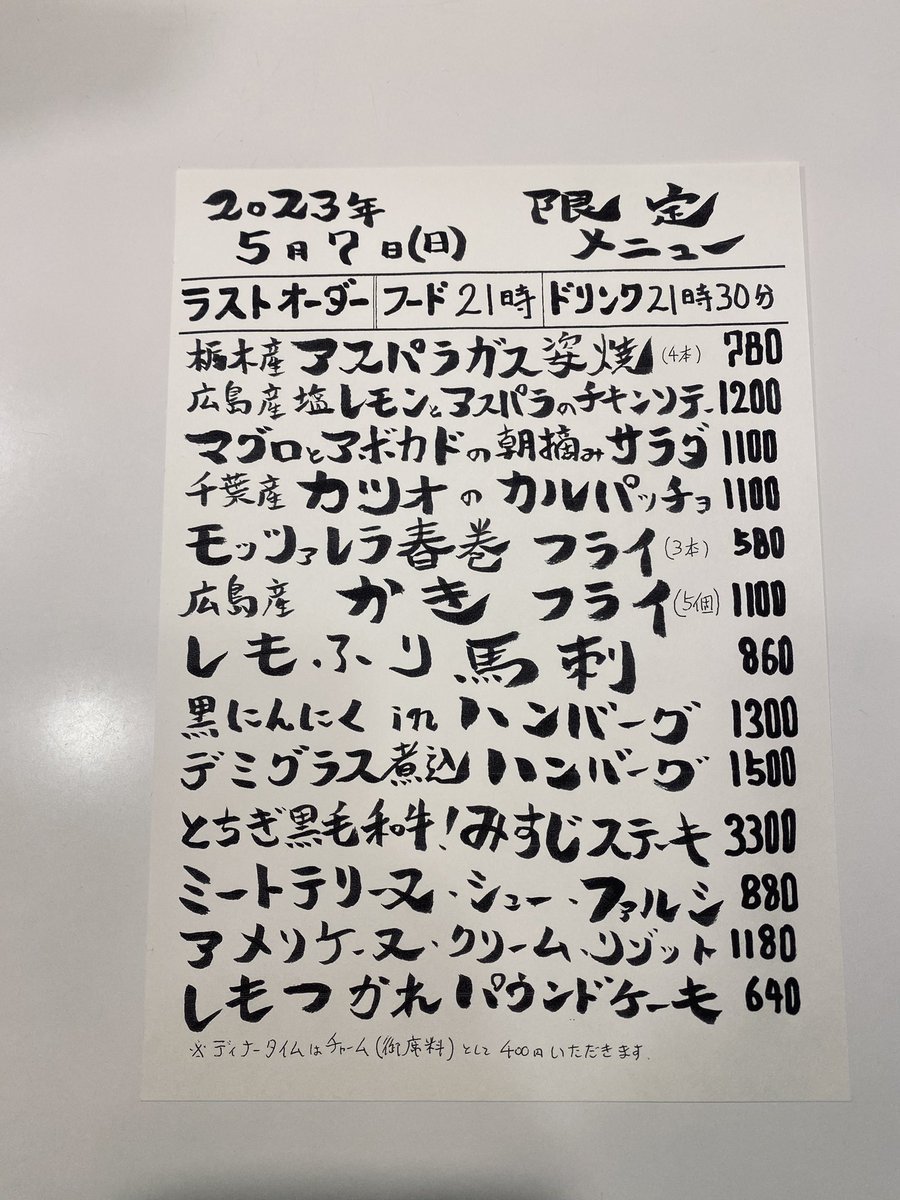 2023年 限定
5月7日(日) メニュー
ラストオーダー フード21時 ドリンク21時30分
栃木産 アスパラガス姿焼(4本) 780
広島産塩レモンとアスパラのチキンソテー 1200
マグロとアボカドの朝摘みサラダ 1100
千葉産 カツオのカルパッチョ 1100
モッツァレラ春巻フライ(3本) 580
広島産 かきフライ(5個) 1100
しもふり馬刺 860
黒にんにくinハンバーグ 1300
デミグラス煮込ハンバーグ 1500
とちぎ黒毛和牛!みすじステーキ 3300
ミートテリーヌ・シュー・ファルシ 880
アメリケーヌ・クリーム・リゾット 1180
しもつかれパウンドケーキ 640
※ディナータイムはチャーム(御席料)として400円いただきます.